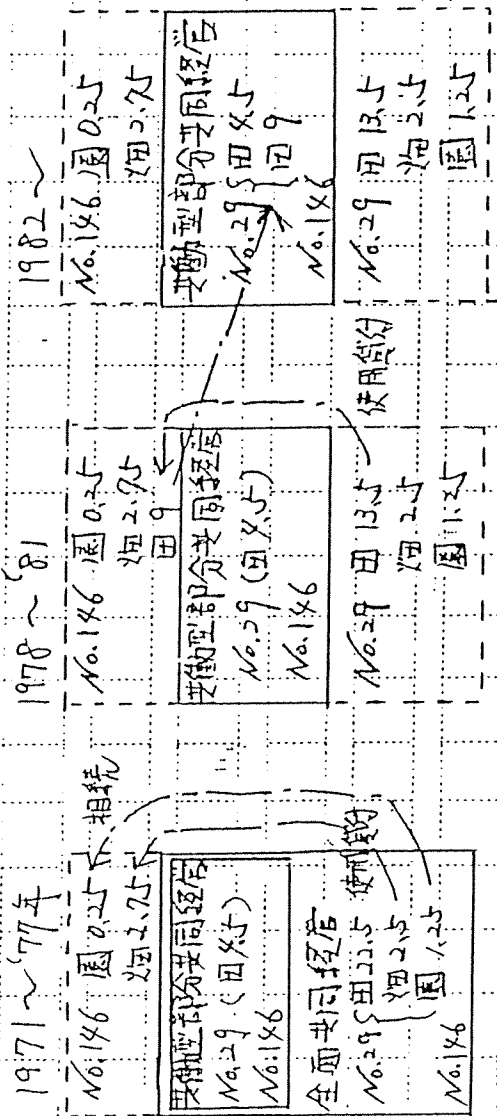 1971～'77年
No.146 園 0.25
畑 2.75
相続
共働型部分共同経営
No.29 (田4.5)
No.146
全面共同経営
使用貸付
No.29 田22.5
畑 2.5
園 1.25
No.146
1978～'81
No.146 園 0.25
畑 2.75
田 9
共働型部分共同経営
No.29 (田4.5)
No.146
No.29 田 13.5
畑 2.5
園 1.25
使用貸付
1982～
No.146 園 0.25
畑 2.75
共働型部分共同経営
No.29 田 4.5
田 9
No.146
No.29 田 13.5
畑 2.5
園 1.25